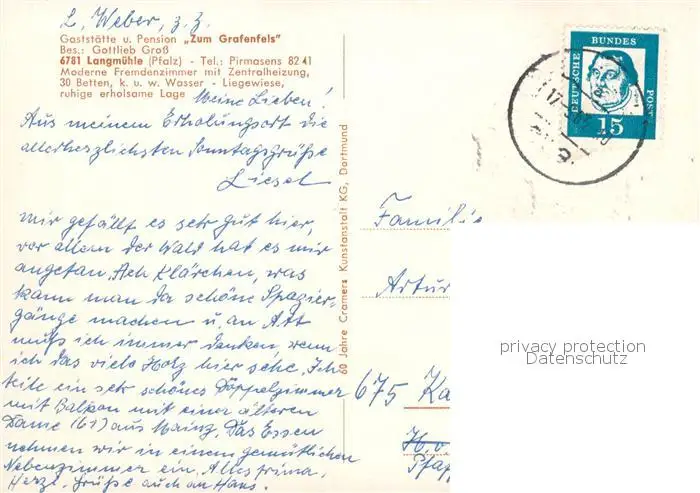 L. Weber, z. Z.
Gaststätte u. Pension „Zum Grafenfels"
Bes.: Gottlieb Groß
6781 Langmühle (Pfalz) - Tel.: Pirmasens 82 41
Moderne Fremdenzimmer mit Zentralheizung,
30 Betten, k. u. w. Wasser - Liegewiese,
ruhige erholsame Lage
Meine Lieben!
Aus meinem Erholungsort die
allerherzlichsten Sonntagsgrüße
Liesel
Mir gefällt es sehr gut hier,
vor allem der Wald hat es mir
angetan. Ach Klärchen, was
kann man da schöne Spazier-
gänge machen u. an Att
muß ich immer denken, wenn
ich das viele Holz hier sehe. Ich
teile ein sehr schönes Doppelzimmer
mit Balkon mit einer älteren
Dame (61) aus Mainz. Das Essen
nehmen wir in einem gemütlichen
Nebenzimmer ein. Alles prima.
Herzl. Grüße auch an Hans.
60 Jahre Cramers Kunstanstalt KG, Dortmund
DEUTSCHE BUNDES POST
15
17
Familie
Artur
675 Ka
privacy protection
Datenschutz